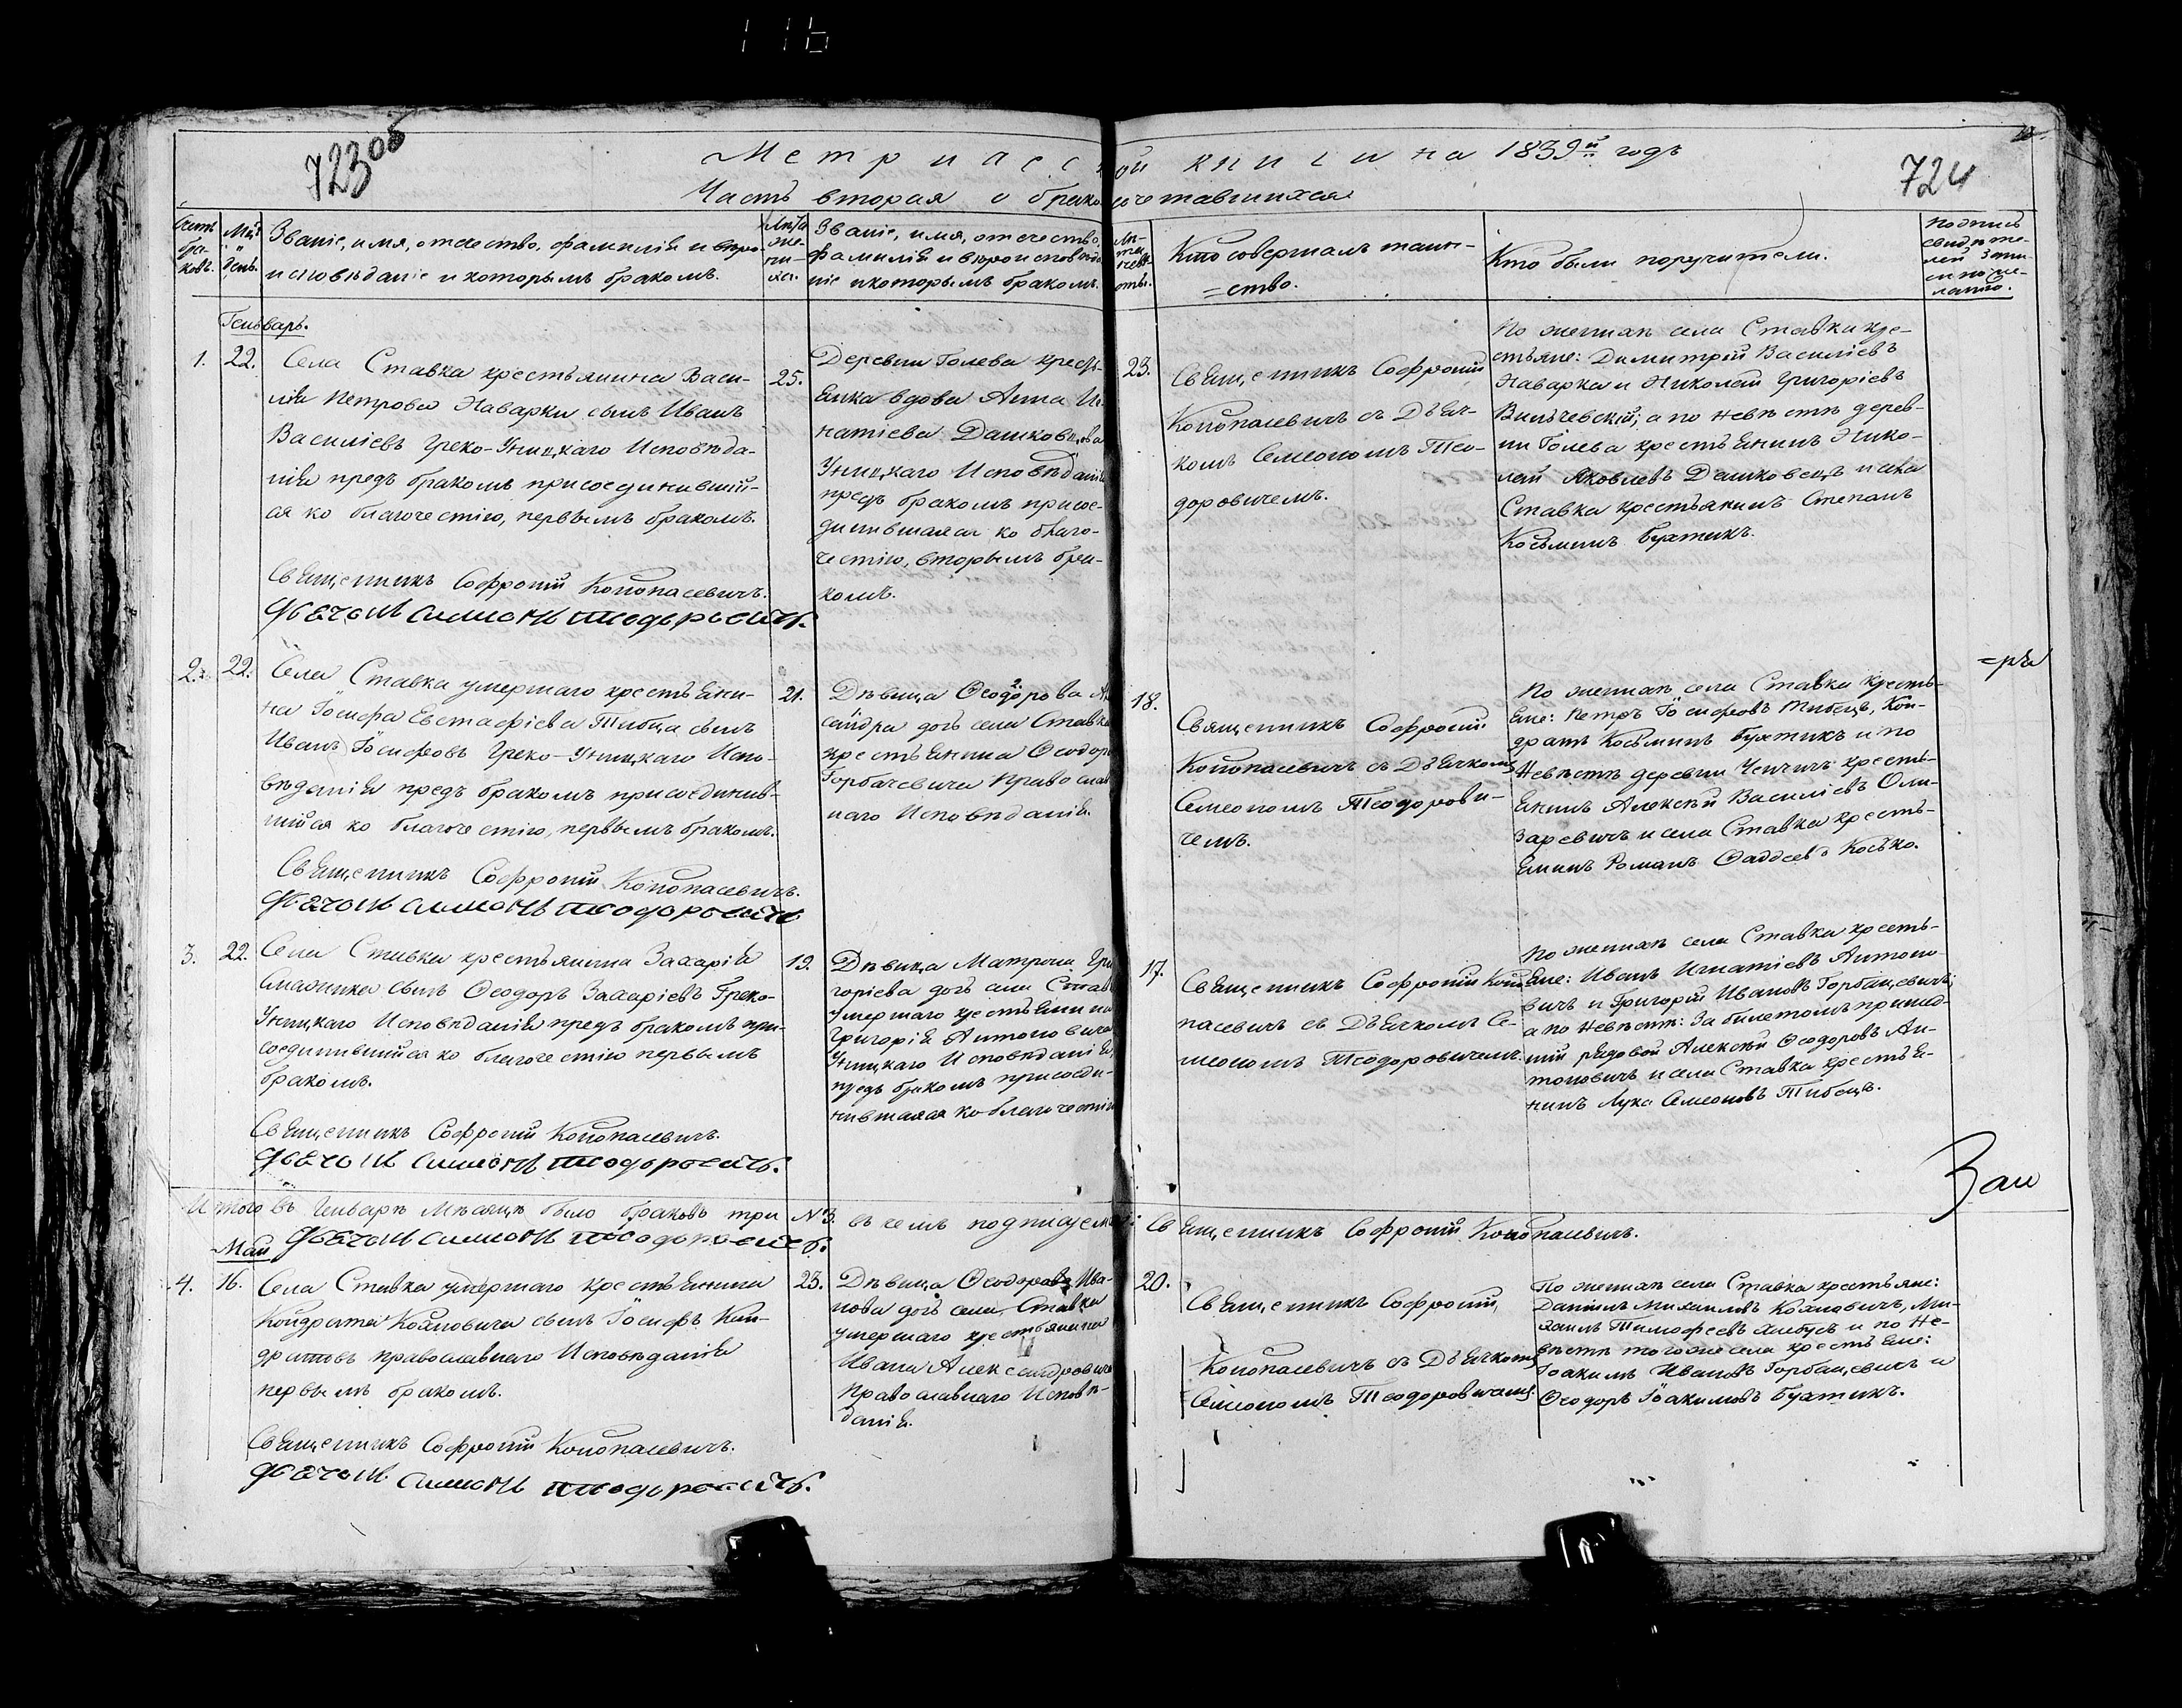 116
723об
724
Метрической книги на 1839й годъ
Часть вторая о бракосочетавшихся
Счетъ бра-ковъ.
Мцъ и день.
Званіе, имя, отчество, фамилія и вѣро-
исповѣданіе и которымъ бракомъ.
Лѣта же-ни-ха.
Званіе, имя, отечество,
фамилія и вѣроисповѣда
ніе и которымъ бракомъ.
Лѣ-та невѣ-сты.
Кто совершалъ таин-
=ство.
Кто были поручители.
Подпись
свидѣте-
лей запи-
си по же-
ланію.
Генварь.
1. 22.
Села Ставка крестьянина Васи-
лія Петрова Наварки сынъ Иванъ
Василіевъ Греко-Уницкаго Исповѣда-
нія предъ бракомъ присоединившій-
ся ко благочестію, первымъ бракомъ.
Священникъ Софроній Конопасевичъ.
Дьячокъ Симеонъ Теодоровичъ.
25.
Деревни Голева крестья-
нка вдова Анна Иг
натіева Дашковцова
Уницкаго Исповѣданія
предъ бракомъ присое-
динившаяся ко благо-
честію, вторымъ бра-
комъ.
23.
Священникъ Софроній
Конопасевичъ съ Дьяч-
комъ Семеономъ Тео-
доровичемъ.
По женихѣ села Ставка кре-
стьяне: Димитрій Василіевъ
Наварка и Николай Григоріевъ
Вильчевскій; а по невѣстѣ дерев-
ни Голева крестьянинъ Нико-
лай Яковлевъ Дашковецъ и села
Ставка крестьянинъ Степанъ
Косьминъ Бухтикъ.
2. 22.
Села Ставка умершаго крестьяни-
на Іосифа Евстафіева Тибца сынъ
Иванъ Іосифовъ Греко-Уницкаго Испо-
вѣданія предъ бракомъ присоединив-
шійся ко благочестію, первымъ бракомъ.
Священникъ Софроній Конопасевичъ.
Дьячокъ Симеонъ Теодоровичъ
21.
Дѣвица Ѳеодорова
сандра дочь села Ставка
крестьянина Ѳеодора
Горбачевича Православ
наго Исповѣданія.
18.
Священникъ Софроній
Конопасевичъ съ Дьячкомъ
Семеономъ Теодорови-
чемъ.
По женихѣ села Ставка кресть-
яне: Петръ Іосифовъ Тибецъ, Кон-
дратъ Косьминъ Бухтикъ и по
Невѣстѣ деревни кресть-
янинъ Алексѣй Василіевъ Оли-
заревичъ и села Ставка кресть-
янинъ Романъ Ѳаддеевъ Косько.
=ръ
3. 22.
Села Ставка крестьянина Захарія
сынъ Ѳеодоръ Захаріевъ Греко-
Уницкаго Исповѣданія предъ бракомъ при-
соединившійся ко благочестію первымъ
бракомъ.
Священникъ Софроній Конопасевичъ.
Дьячокъ Симеонъ Теодоровичъ.
19.
Дѣвица Матрона Гри
горіева дочь села Став
умершаго крестьянина
Григорія Антоновича
Уницкаго Исповѣданія,
предъ бракомъ присоеди-
нившаяся ко благочестію
17.
Священникъ Софроній Коно
пасевичъ съ Дьячкомъ Се-
меономъ Теодоровичемъ.
По женихѣ села Ставка кресть-
яне: Иванъ Игнатіевъ Антоно
вичъ и Григорій Ивановъ Горбацевичъ;
а по Невѣстѣ: За билетомъ пришед-
шій рядовой Алексѣй Ѳеодоровъ Ан-
тоновичъ и села Ставка крестья-
нинъ Лука Семеоновъ Тибецъ.
Зап
Итого въ Генварѣ Мѣсяцѣ было браковъ три №3. въ чемъ подписуемся: Священникъ Софроній Конопасевичъ.
Дьячокъ Симеонъ Теодоровичъ.
Май
4. 16.
Села Ставка умершаго крестьянина
Кондрата Кохновича сынъ Іосифъ Кон-
дратовъ православнаго Исповѣданія
первымъ бракомъ.
Священникъ Софроній Конопасевичъ.
Дьячокъ Симеонъ Теодоровичъ.
23.
Дѣвица Ѳеодора Ива-
нова дочь села Ставка
умершаго крестьянина
Ивана Александровича
Православнаго Исповѣ-
данія.
20.
Священникъ Софроній,
Конопасевичъ съ Дьячкомъ
Семеономъ Теодоровичемъ.
По женихѣ села Ставка крестьяне:
Даніилъ Михаиловъ Кохновичъ, Ми-
хаилъ Тимофеевъ и по Не-
вѣстѣ тогоже села крестьяне:
Іоакимъ Ивановъ Горбацевичъ и
Ѳеодоръ Іоакимовъ Бухтикъ.